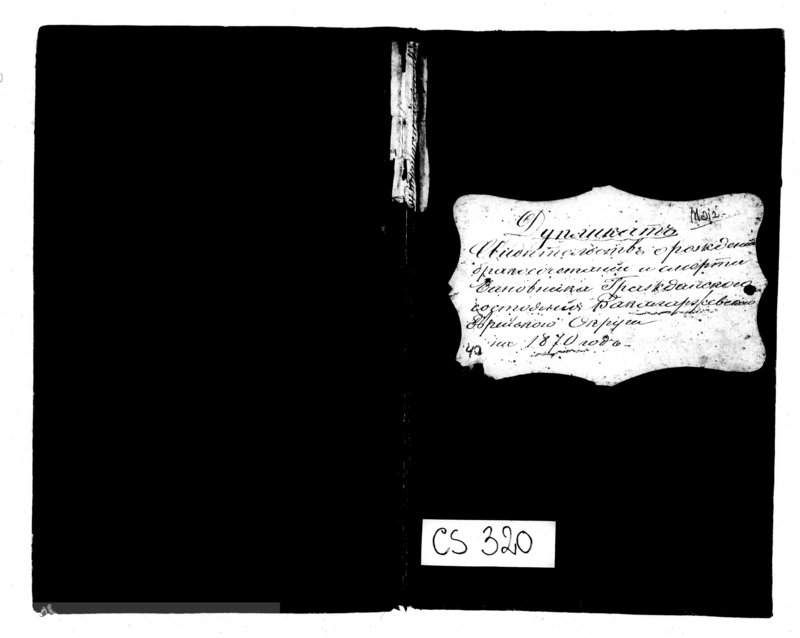 Дупликатъ
Свидѣтельствъ о рожденіи
бракосочетаніи и смерти
Чиновника Гражданского
состоянія Бакаларжевского
Еврейского Округа
на 1870 годъ.
40
CS 320